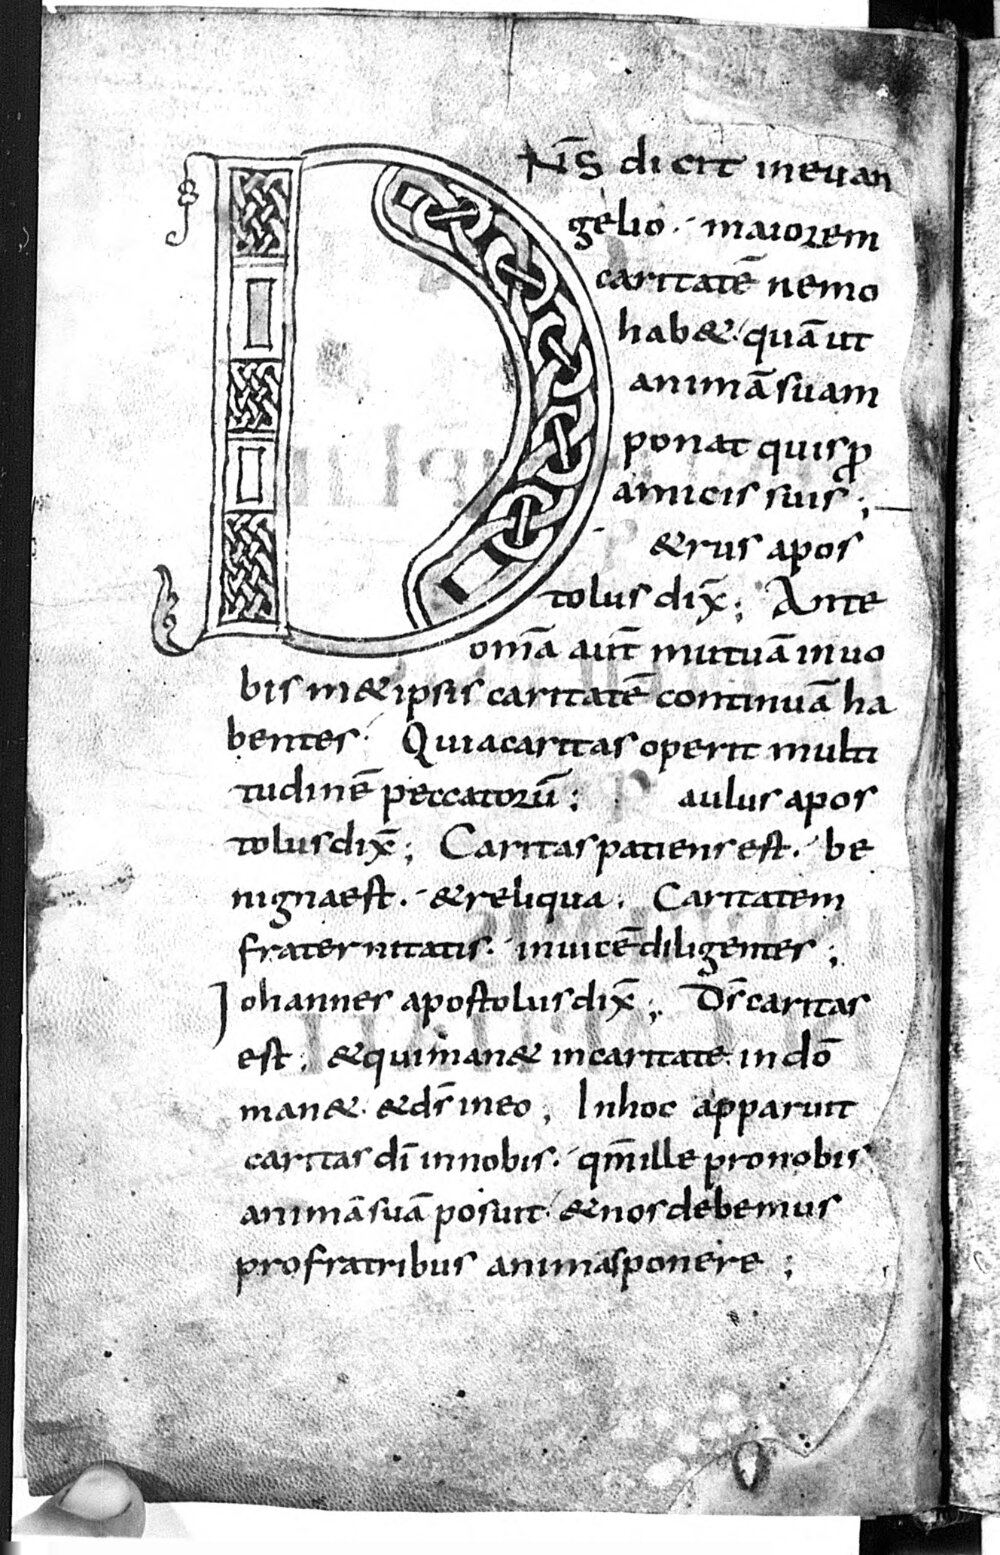 DN̄S dicit inevan
gelio · maiorem
caritatē nemo
hab& · quāut
animāsuam
ponat quisꝓ
amicis suis ;
&rus apos
tolus dix̄ ; Ante
om̄a aūt mutuā inuo
bis m&ipsis caritatē continuā ha
bentes · Quiacaritas operit multi
tudinē peccatorū : aulus apos
tolusdix̄ ; Caritaspatiensest · be
nignaest · &reliqua ; Caritatem
fraternitatis · inuicēdiligentes ;
Iohannes apostolusdix̄ ; Ds̄caritas
est ; &quiman& incaritate in dō
man& · &ds̄ ineo ; Inhoc apparuit
caritas dī innobis · qm̄ille pronobis
animāsuā posuit · &nosdebemus
profratribus animasponere ;